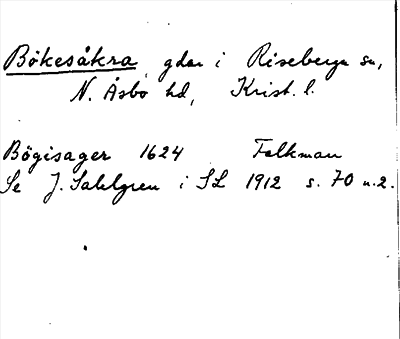 Bökesåkra, gdar i Riseberga sn,
N. Åsbo hd, Krist. l.
Bögisager 1624 Falkman
Se J. Sahlgren i SL 1912 s. 70 n. 2.